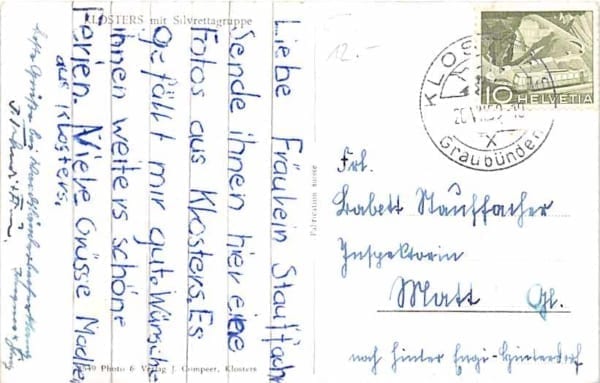 KLOSTERS mit Silvrettagruppe
Liebe Fräulein Stauffach
Sende ihnen hier eine
Fotos aus Klosters. Es
gefällt mir gut. Wünsche
ihnen weiters schöne
Ferien. Viele Grüsse Madlen
aus Klosters.
Fabrication suisse
Photo & Verlag J. Compeer, Klosters
12.-
10 HELVETIA
KLOSTERS
X
Graubünden
Frl.
Babett Stauffacher
Inspektorin
Matt Gl.
noch hinter Engi-Hinterdorf